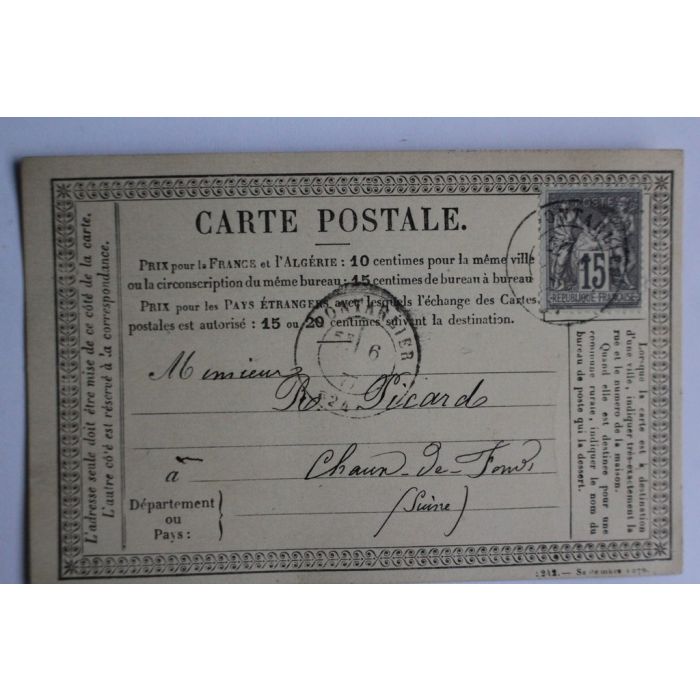 L'adresse seule doit être mise de ce côté de la carte.
L'autre côté est réservé à la correspondance.
CARTE POSTALE.
PRIX pour la FRANCE et l'ALGÉRIE : 10 centimes pour la même ville
ou la circonscription du même bureau ; 15 centimes de bureau à bureau
PRIX pour les PAYS ÉTRANGERS avec lesquels l'échange des Cartes
postales est autorisé : 15 ou 20 centimes suivant la destination.
POSTES
15
REPUBLIQUE FRANÇAISE
PONTARLIER
6
Monsieur
R. Picard
à Chaux-de-Fonds
(Suisse)
Département
ou
Pays :
Lorsque la carte est à destination
d'une ville, indiquer très-exactement la
rue et le numéro de la maison.
Quand elle est destinée pour une
commune rurale, indiquer le nom du
bureau de poste qui la dessert.